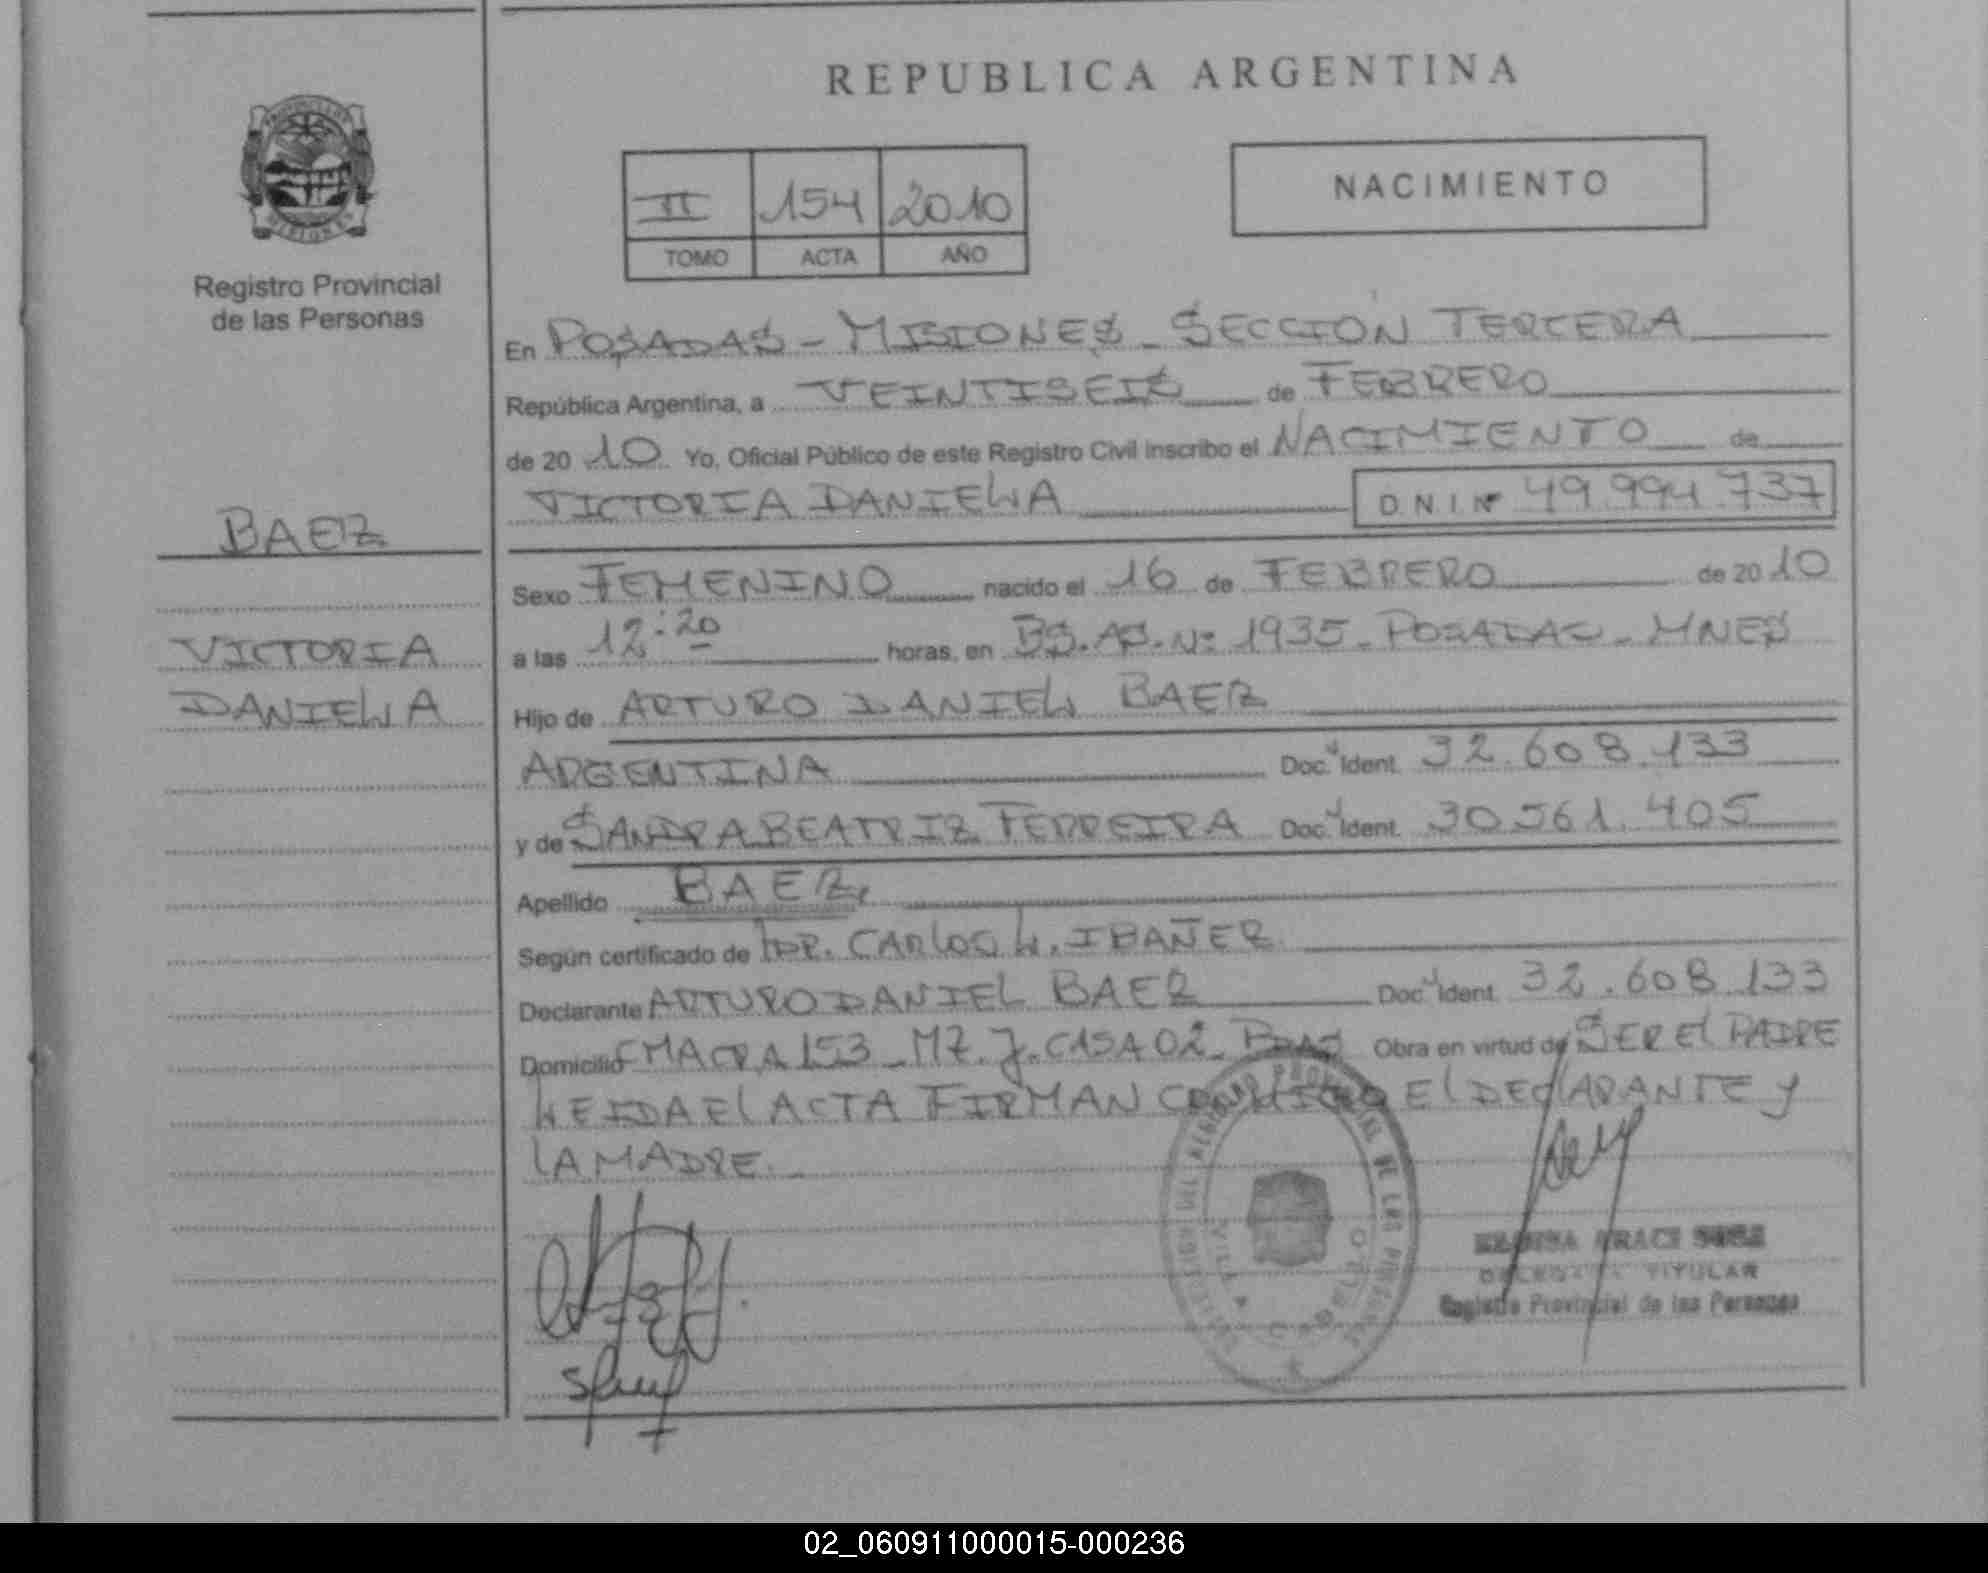 REPUBLICA ARGENTINA
II 154 2010
TOMO ACTA AÑO
NACIMIENTO
PROVINCIA DE MISIONES
Registro Provincial
de las Personas
En POSADAS - MISIONES - SECCION TERCERA
República Argentina, a VEINTISEIS de FEBRERO
de 20 10 Yo, Oficial Público de este Registro Civil inscribo el NACIMIENTO de
VICTORIA DANIELA D.N.I.Nº 49.994.737
BAEZ
VICTORIA
DANIELA
Sexo FEMENINO nacido el 16 de FEBRERO de 20 10
a las 12:20 horas, en BS.AS. Nº 1935 - POSADAS - MNES
Hijo de ARTURO DANIEL BAEZ
ARGENTINA Doc. Ident. 32.608.133
y de SANDRA BEATRIZ FERREIRA Doc. Ident. 30.561.405
Apellido BAEZ
Según certificado de DR. CARLOS L. IBAÑEZ
Declarante ARTURO DANIEL BAEZ Doc. Ident. 32.608.133
Domicilio CHACRA 153 - MZ. J. CASA 02 - PDAS Obra en virtud de SER El PADRE
LEIDA El ACTA FIRMAN CONMIGO El DEClARANTE y
lA MADRE.
REGISTRO PROVINCIAL DE LAS PERSONAS
VILLA CABELLO
DELEGADA TITULAR
Registro Provincial de las Personas
02_060911000015-000236